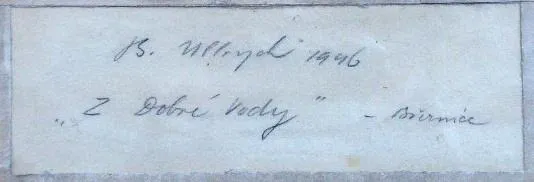 B. Ullrych 1946
„Z Dobré Vody"